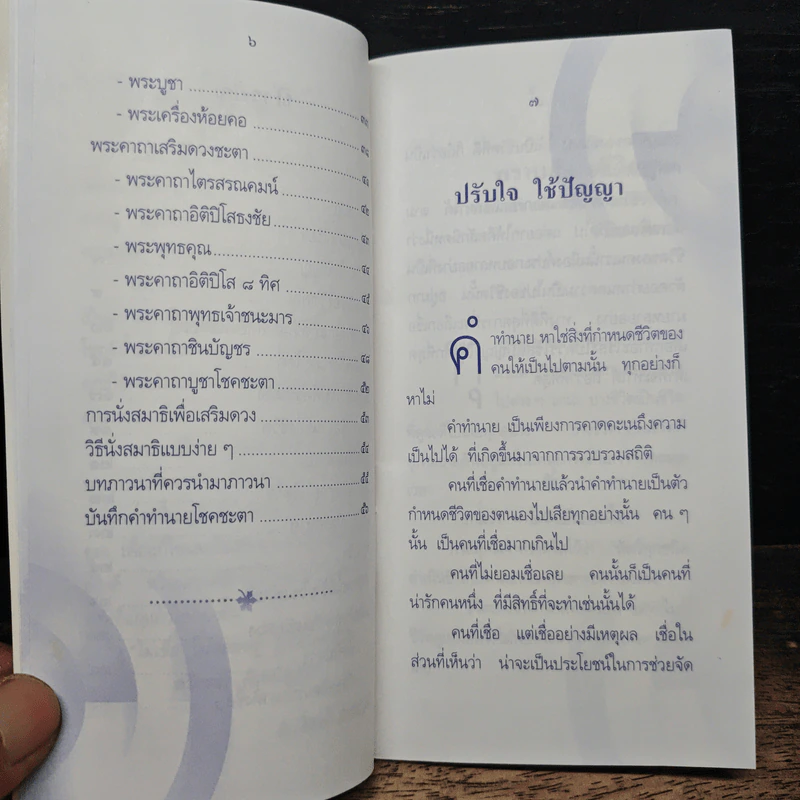 ๖
- พระบูชา
- พระเครื่องห้อยคอ
พระคาถาเสริมดวงชะตา
- พระคาถาไตรสรณคมน์
- พระคาถาอิติปิโสธงชัย
- พระพุทธคุณ
- พระคาถาอิติปิโส ๘ ทิศ
- พระคาถาพุทธเจ้าชนะมาร
- พระคาถาชินบัญชร
- พระคาถาบูชาโชคชะตา
การนั่งสมาธิเพื่อเสริมดวง
วิธีนั่งสมาธิแบบง่าย ๆ
บทภาวนาที่ควรนำมาภาวนา
บันทึกคำทำนายโชคชะตา
๗
ปรับใจ ใช้ปัญญา
คำทำนาย หาใช่สิ่งที่กำหนดชีวิตของ
คนให้เป็นไปตามนั้น ทุกอย่างก็
หาไม่
คำทำนาย เป็นเพียงการคาดคะเนถึงความ
เป็นไปได้ ที่เกิดขึ้นมาจากการรวบรวมสถิติ
คนที่เชื่อคำทำนายแล้วนำคำทำนายเป็นตัว
กำหนดชีวิตของตนเองไปเสียทุกอย่างนั้น คน ๆ
นั้น เป็นคนที่เชื่อมากเกินไป
คนที่ไม่ยอมเชื่อเลย คนนั้นก็เป็นคนที่
น่ารักคนหนึ่ง ที่มีสิทธิ์ที่จะทำเช่นนั้นได้
คนที่เชื่อ แต่เชื่ออย่างมีเหตุผล เชื่อใน
ส่วนที่เห็นว่า น่าจะเป็นประโยชน์ในการช่วยจัด